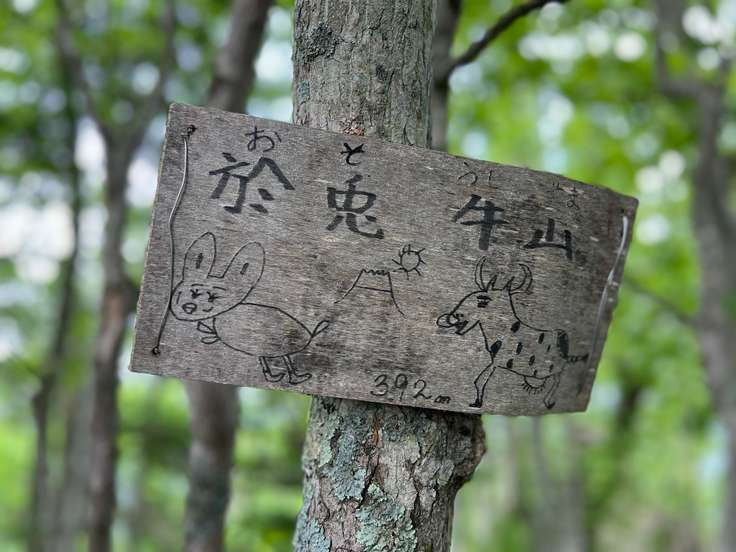 お と うし やま
於兎牛山
392m